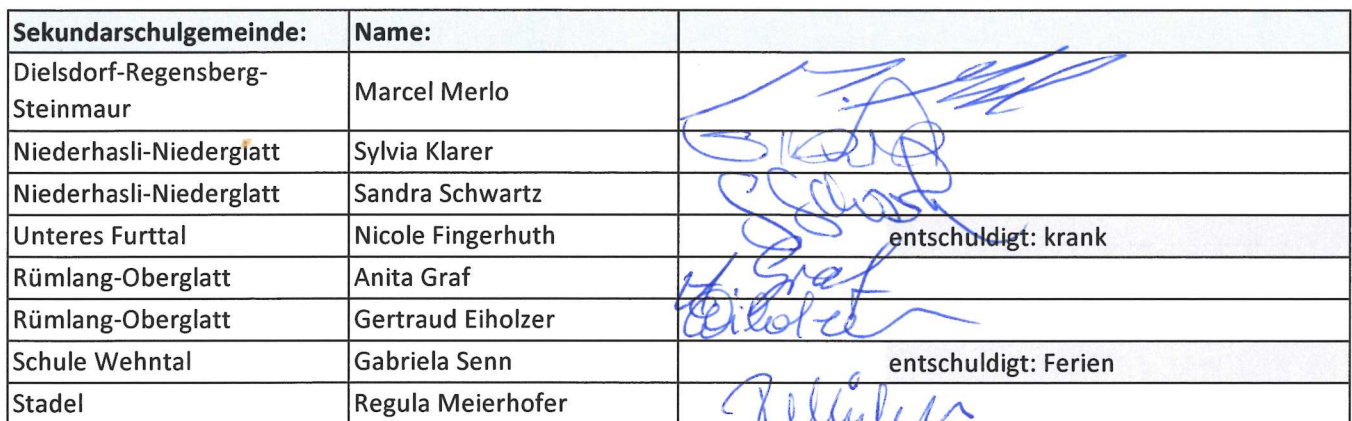 Sekundarschulgemeinde: Name:
Dielsdorf-Regensberg-
Steinmaur Marcel Merlo
Niederhasli-Niederglatt Sylvia Klarer
Niederhasli-Niederglatt Sandra Schwartz
Unteres Furttal Nicole Fingerhuth entschuldigt: krank
Rümlang-Oberglatt Anita Graf A. Graf
Rümlang-Oberglatt Gertraud Eiholzer Eiholzer
Schule Wehntal Gabriela Senn entschuldigt: Ferien
Stadel Regula Meierhofer